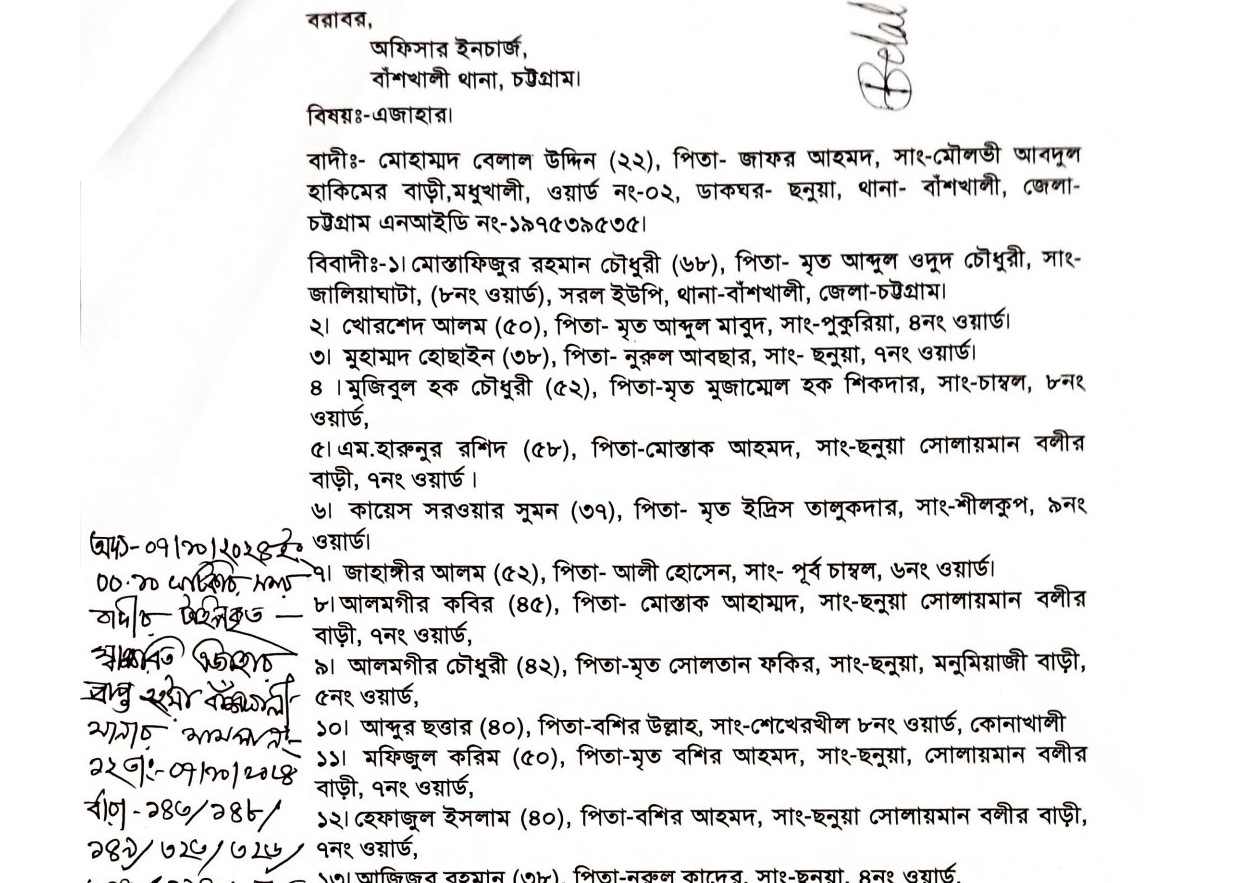 বরাবর,
অফিসার ইনচার্জ,
বাঁশখালী থানা, চট্টগ্রাম।
Belal
বিষয়ঃ-এজাহার।
বাদীঃ- মোহাম্মদ বেলাল উদ্দিন (২২), পিতা- জাফর আহমদ, সাং-মৌলভী আবদুল
হাকিমের বাড়ী,মধুখালী, ওয়ার্ড নং-০২, ডাকঘর- ছনুয়া, থানা- বাঁশখালী, জেলা-
চট্টগ্রাম এনআইডি নং-১৯৭৫৩৯৫৩৫।
বিবাদীঃ-১। মোস্তাফিজুর রহমান চৌধুরী (৬৮), পিতা- মৃত আব্দুল ওদুদ চৌধুরী, সাং-
জালিয়াঘাটা, (৮নং ওয়ার্ড), সরল ইউপি, থানা-বাঁশখালী, জেলা-চট্টগ্রাম।
২। খোরশেদ আলম (৫০), পিতা- মৃত আব্দুল মাবুদ, সাং-পুকুরিয়া, ৪নং ওয়ার্ড।
৩। মুহাম্মদ হোছাইন (৩৮), পিতা- নুরুল আবছার, সাং- ছনুয়া, ৭নং ওয়ার্ড।
৪ । মুজিবুল হক চৌধুরী (৫২), পিতা-মৃত মুজাম্মেল হক শিকদার, সাং-চাম্বল, ৮নং
ওয়ার্ড,
৫। এম.হারুনুর রশিদ (৫৮), পিতা-মোস্তাক আহমদ, সাং-ছনুয়া সোলায়মান বলীর
বাড়ী, ৭নং ওয়ার্ড ।
৬। কায়েস সরওয়ার সুমন (৩৭), পিতা- মৃত ইদ্রিস তালুকদার, সাং-শীলকুপ, ৯নং
ওয়ার্ড।
৭। জাহাঙ্গীর আলম (৫২), পিতা- আলী হোসেন, সাং- পূর্ব চাম্বল, ৬নং ওয়ার্ড।
৮। আলমগীর কবির (৪৫), পিতা- মোস্তাক আহাম্মদ, সাং-ছনুয়া সোলায়মান বলীর
বাড়ী, ৭নং ওয়ার্ড,
৯। আলমগীর চৌধুরী (৪২), পিতা-মৃত সোলতান ফকির, সাং-ছনুয়া, মনুমিয়াজী বাড়ী,
৫নং ওয়ার্ড,
১০। আব্দুর ছত্তার (৪০), পিতা-বশির উল্লাহ, সাং-শেখেরখীল ৮নং ওয়ার্ড, কোনাখালী
১১। মফিজুল করিম (৫০), পিতা-মৃত বশির আহমদ, সাং-ছনুয়া, সোলায়মান বলীর
বাড়ী, ৭নং ওয়ার্ড,
১২। হেফাজুল ইসলাম (৪০), পিতা-বশির আহমদ, সাং-ছনুয়া সোলায়মান বলীর বাড়ী,
৭নং ওয়ার্ড,
১৩। আজিজুর রহমান (৩৮), পিতা-নুরুল কাদের, সাং-ছনুয়া, ৪নং ওয়ার্ড,
অদ্য-০৭/১০/২০২৪ইং
০০.১০ ঘটিকার সময়
বাদীর
স্বাক্ষরিত এজাহার
প্রাপ্ত হইয়া বাঁশখালী
থানার মামলা নং-
১২ তাং-০৭/১০/২০২৪
ধারা-১৪৩/১৪৮/
১৪৯/৩২৩/৩২৬/